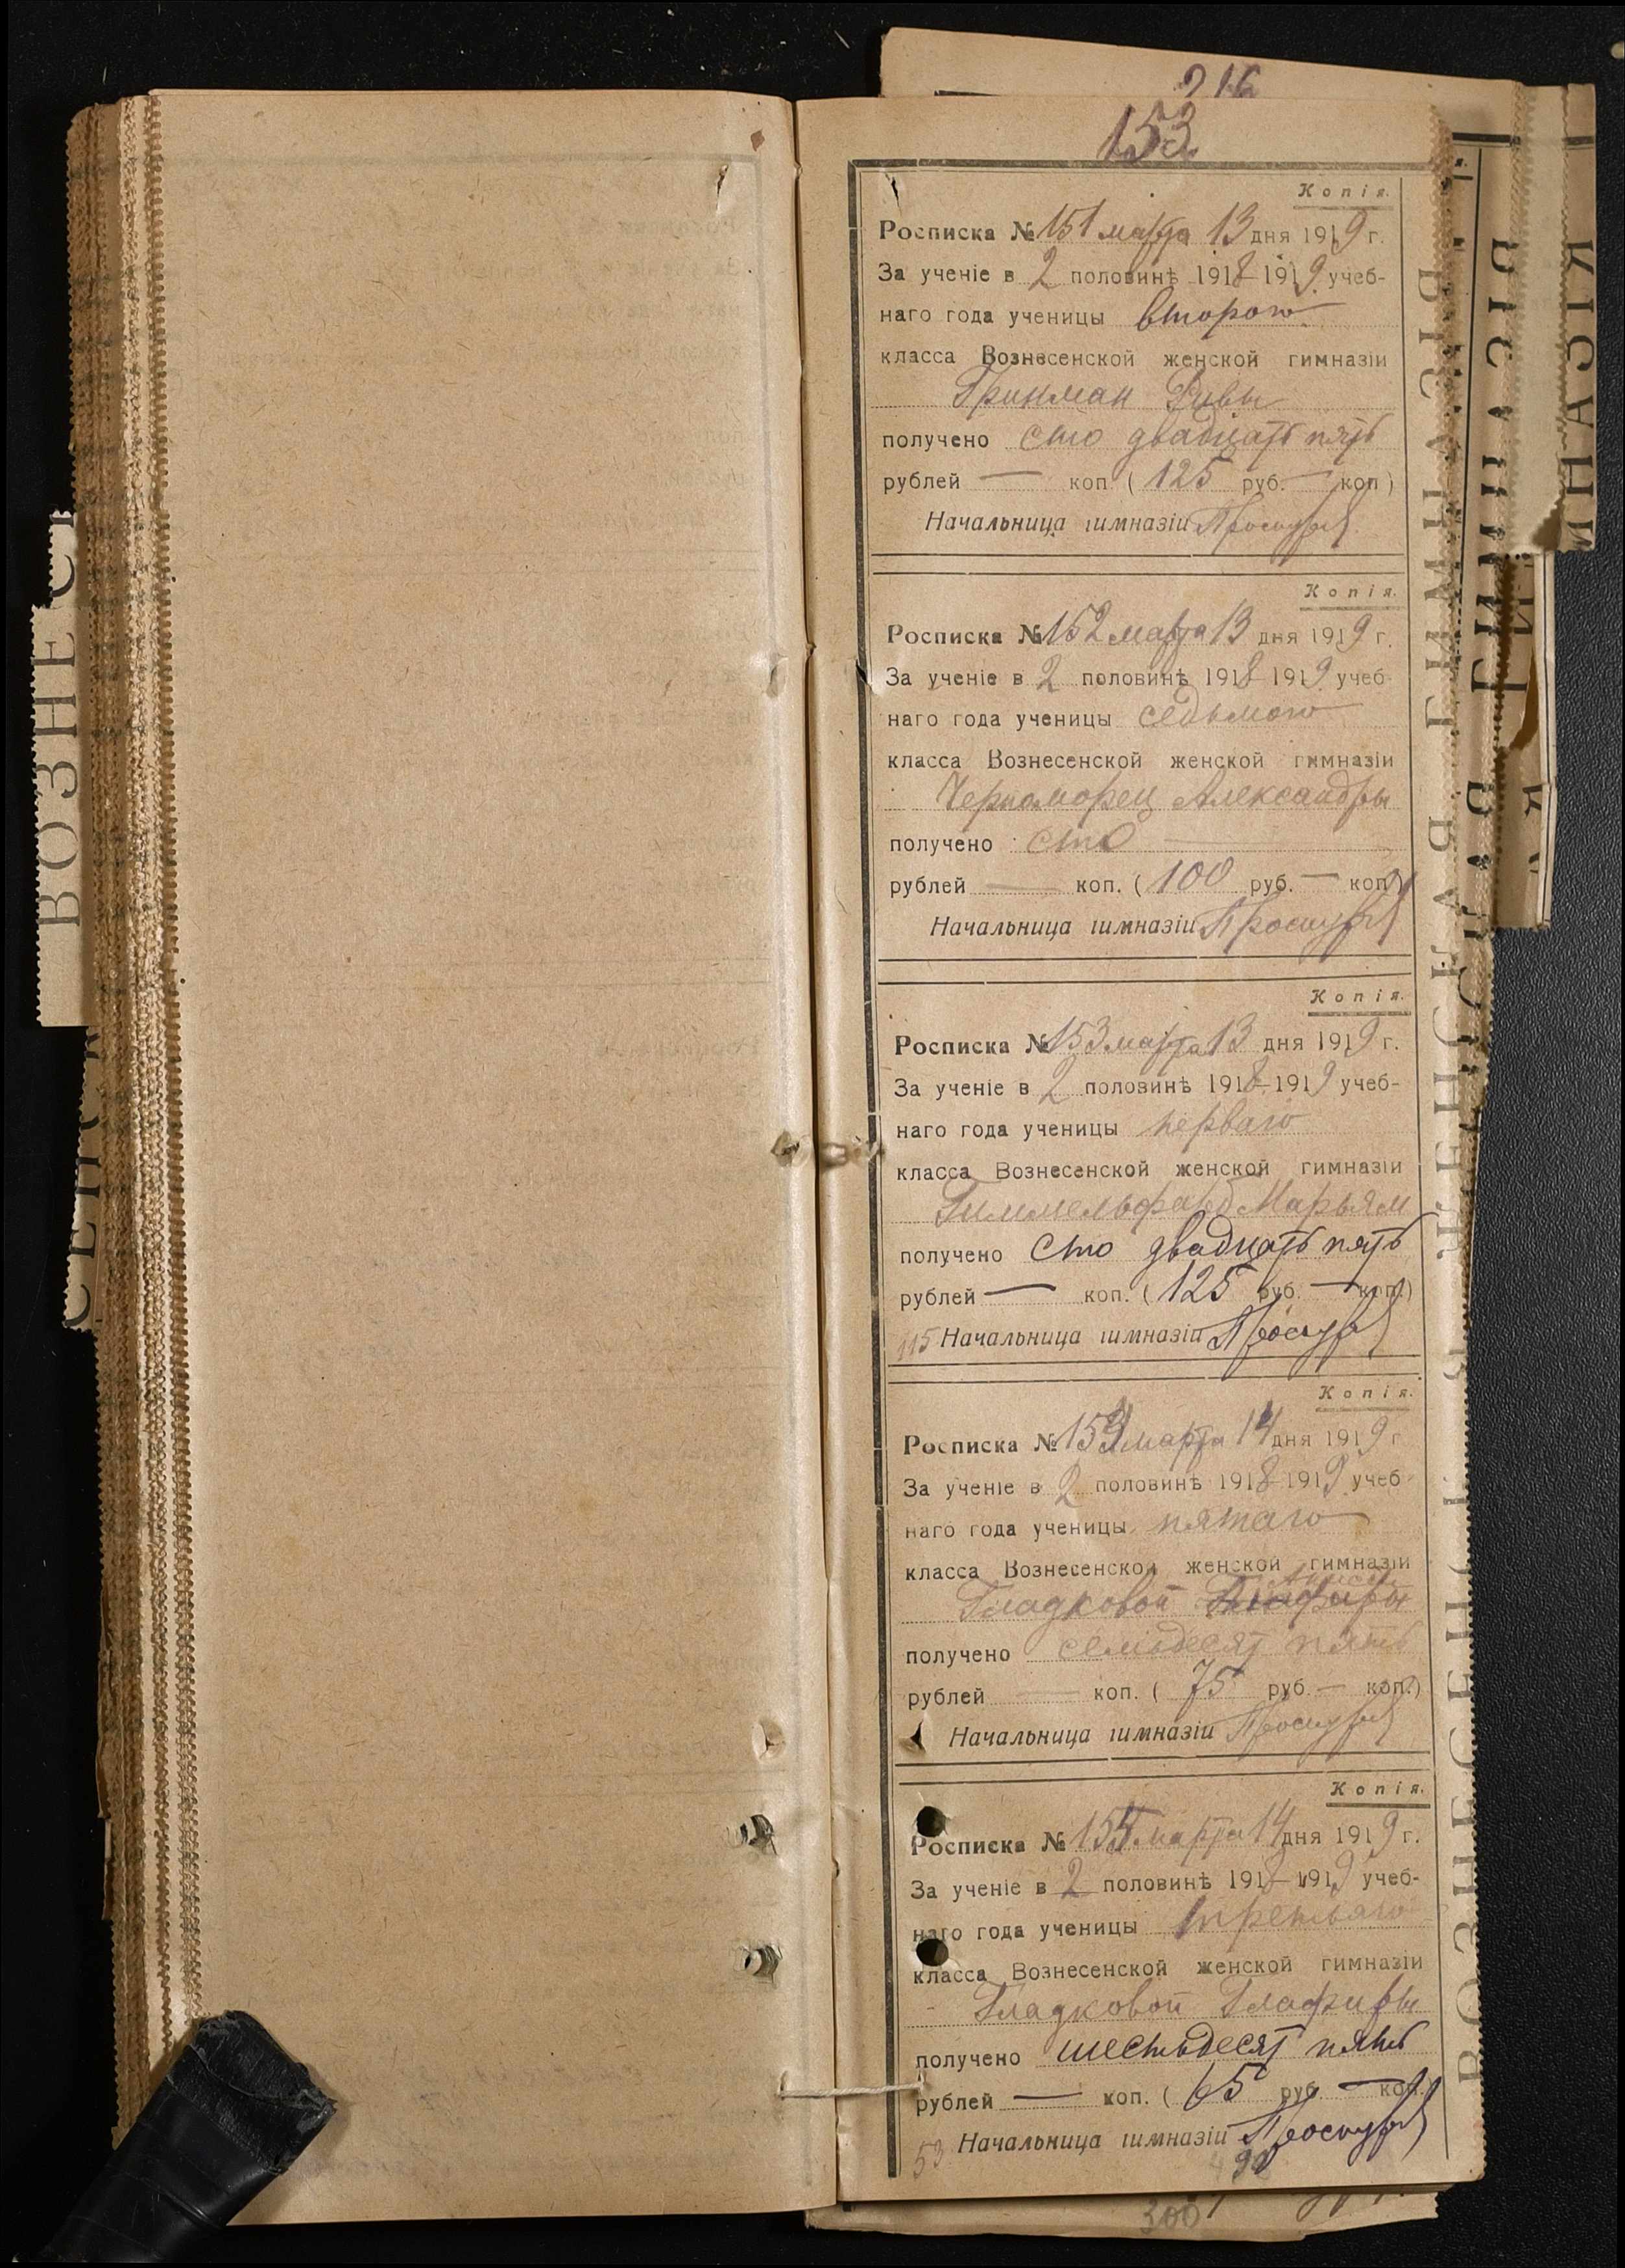 216
153
Копія.
Росписка № 151 марта 13 дня 1919 г.
За ученіе в 2 половинѣ 1918-1919 учеб-
наго года ученицы второго
класса Вознесенской женской гимназіи
Гринман Ривы
получено сто двадцать пять
рублей — коп. (125 руб. — коп)
Начальница гимназіи
Копія.
Росписка № 152 марта 13 дня 1919 г.
За ученіе в 2 половинѣ 1918-1919 учеб-
наго года ученицы седьмого
класса Вознесенской женской гимназіи
Черноморец Александры
получено сто —
рублей — коп. (100 руб. — коп)
Начальница гимназіи
Копія.
Росписка № 153 марта 13 дня 1919 г.
За ученіе в 2 половинѣ 1918-1919 учеб-
наго года ученицы перваго
класса Вознесенской женской гимназіи
Гиммельфарб Марьям
получено сто двадцать пять
рублей — коп. (125 руб. — коп.)
Начальница гимназіи
Копія.
Росписка № 154 марта 14 дня 1919 г
За ученіе в 2 половинѣ 1918-1919 учеб
наго года ученицы пятаго
класса Вознесенской женской гимназіи
Гладковой Глафиры
получено семьдесят пять
рублей — коп. (75 руб. — коп.)
Начальница гимназіи
Копія.
Росписка № 155 марта 14 дня 1919 г.
За ученіе в 2 половинѣ 1918-1919 учеб-
наго года ученицы третьяго
класса Вознесенской женской гимназіи
Гладковой Глафиры
получено шестьдесят пять
рублей — коп. (65 руб. — коп.
53 Начальница гимназіи
300
ВОЗНЕС